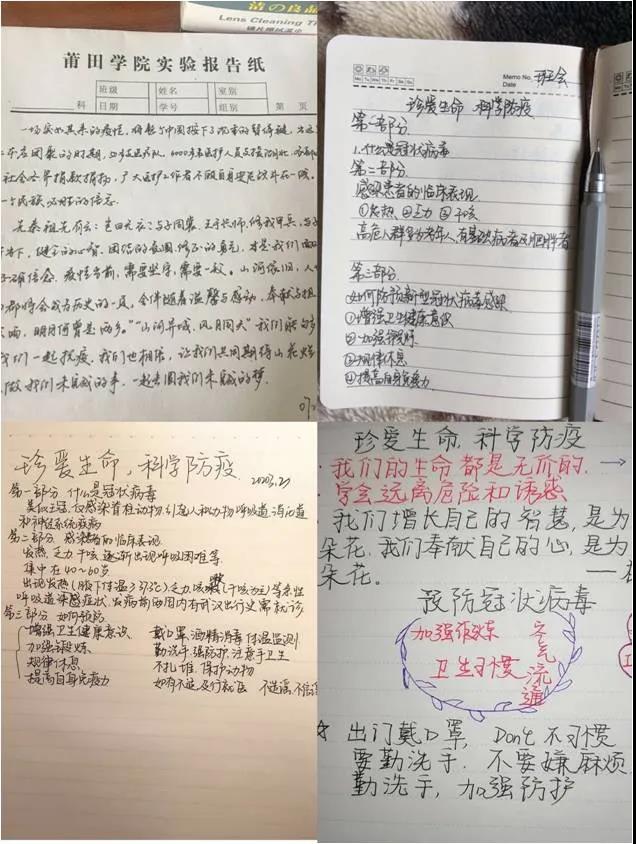 洁の良品
Lens Cleaning Ti
莆田学院实验报告纸
班级 姓名 室别
科 日期 学号 组别 第 页
一场突如其来的疫情,将整个中国按下了
社会各界捐款捐物,广大医护工作者不顾自身安危战斗在一线。
先秦祖先有云:岂曰无衣?与子同裳。王于兴师,修我甲兵,与子
疫情当前,需要坚守,需要一致。山河依旧,人
都将会成为历史的一页。会伴随着温馨与感动,奉献与担
明月何曾是两乡。”“山河异域,风月同天”我们能够
我们一起抗疫,我们也相信,让我们共同期待山花烂
做我们未完成的事,一起去圆我们未完成的梦。
Memo No. 班会
Mo Tu We Th Fr Sa Su
Date
珍爱生命 科学防疫
第一部分
1.什么是冠状病毒
第二部分
感染患者的临床表现
①发热 ②乏力 ③干咳
高危人群多为老年人,有基础病者及肥胖者
第三部分
如何预防新型冠状病毒感染
①增强卫生健康意识
②加强锻炼
③规律休息
④提高自身免疫力
珍爱生命,科学防疫
第一部分 什么是冠状病毒
类似王冠,仅感染脊柱动物,引起人和动物呼吸道、消化道
和神经系统疾病
第二部分 感染患者的临床表现
发热、乏力、干咳、逐渐出现呼吸困难等
集中在40~60岁
出现发热(腋下体温≥37.3℃)乏力、咳嗽(干咳为主)等急性
呼吸道感染症状,发病前两周内有武汉出行史需就诊
第三部分 如何预防
增强卫生健康意识 戴口罩、酒精消毒 体温监测
加强锻炼 勤洗手 强防护 注意手卫生
规律休息 不扎堆,保护动物
提高自身免疫力 如有不适及行就医 不造谣,不信谣
珍爱生命,科学防疫
我们的生命都是无价的. →
学会远离危险和诱惑
我们增长自己的智慧,是为
朵花,我们奉献自己的心,是为
朵花。
预防冠状病毒
加强锻炼 空气流通
卫生习惯
☆ 出门戴口罩,Don't 不习惯
要勤洗手,不要嫌麻烦
勤洗手,加强防护